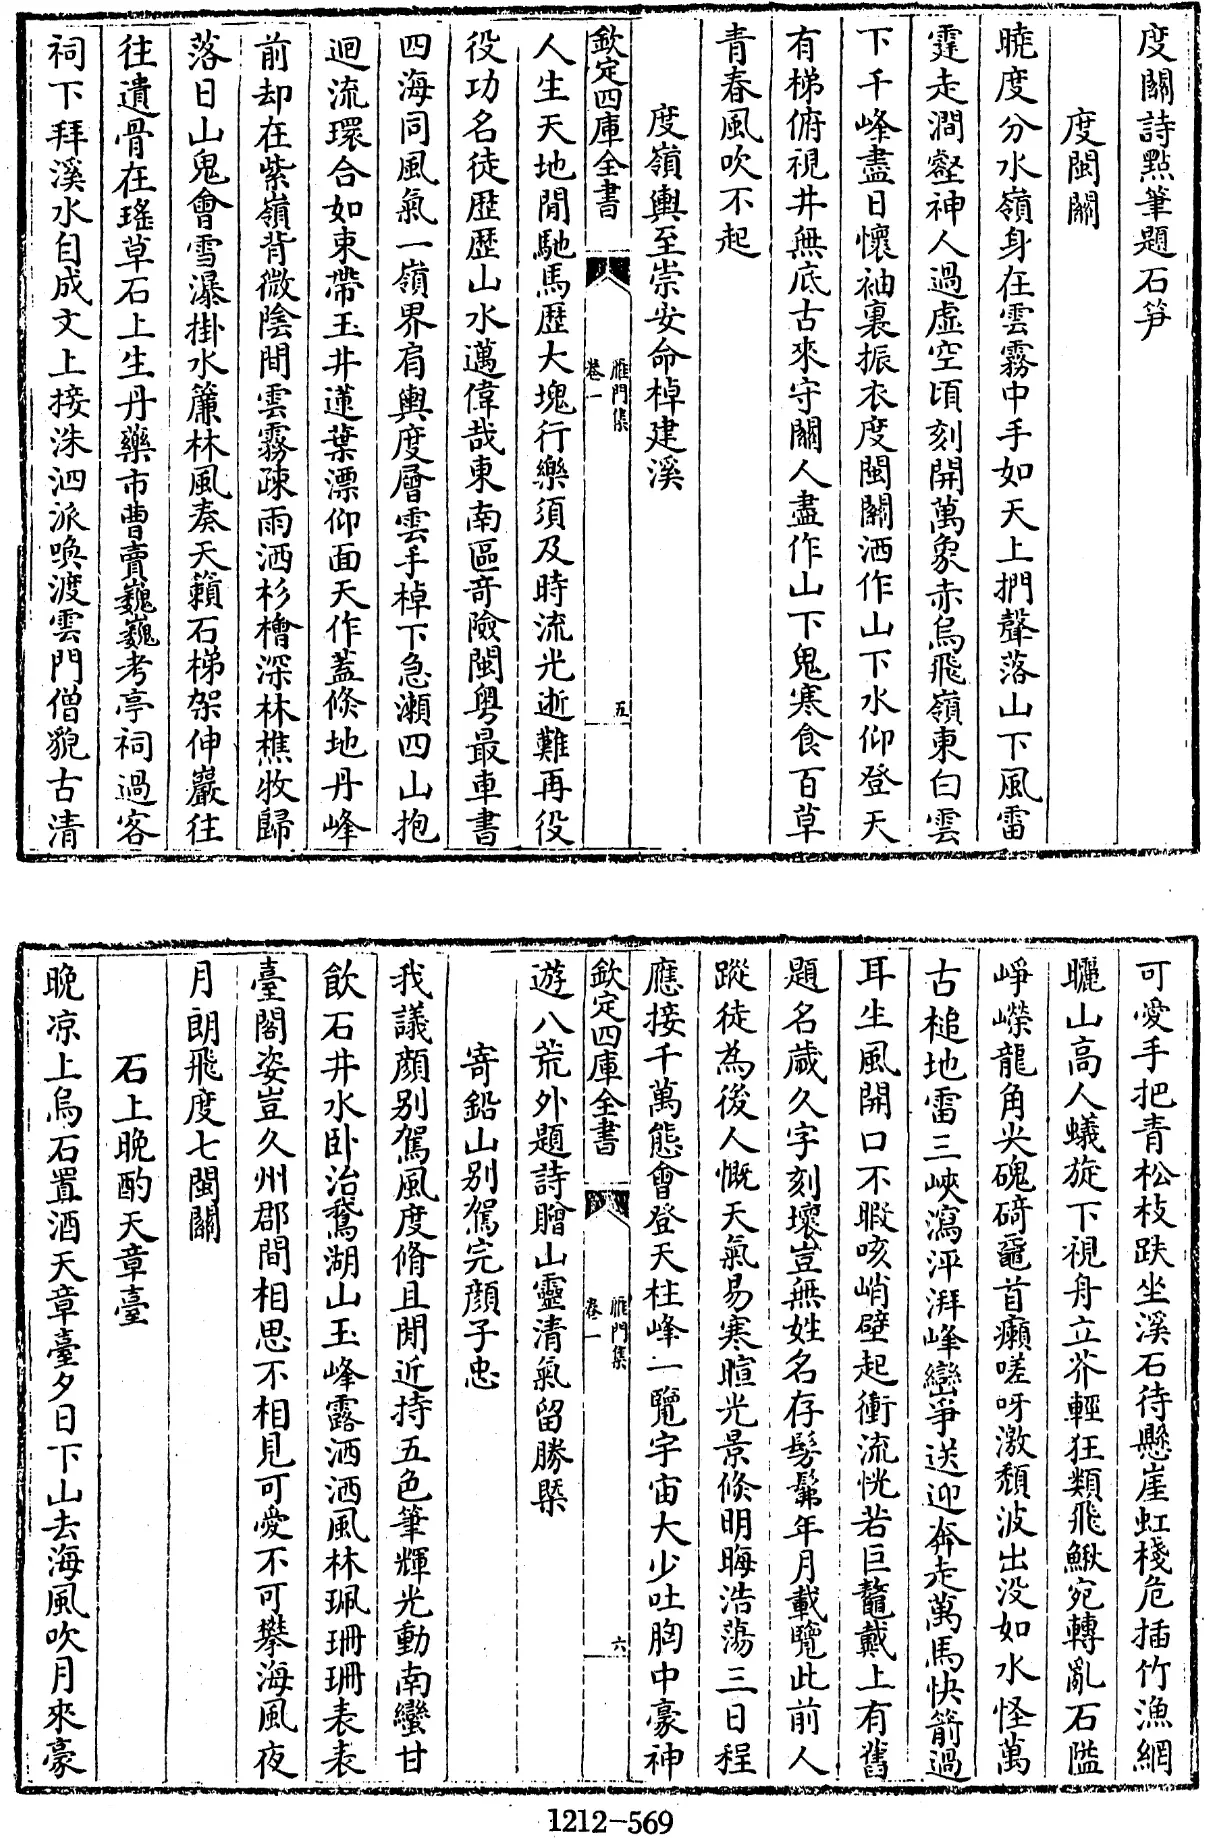 度關詩點筆題石笋
度閩關
曉度分水嶺身在雲霧中手如天上捫聲落山下風雷
霆走澗壑神人過虛空頃刻開萬象赤烏飛嶺東白雲
下千峰盡日懷袖裏振衣度閩關洒作山下水仰登天
有梯俯視井無底古來守關人盡作山下鬼寒食百草
青春風吹不起
度嶺輿至崇安命棹建溪
欽定四庫全書
鴈門集
卷一
五
人生天地間馳馬歴大塊行樂須及時流光逝難再役
役功名徒歴歴山水邁偉哉東南區竒險閩粤最車書
四海同風氣一嶺界肩輿度層雲手棹下急瀬四山抱
迴流環合如束帶玉井蓮葉漂仰面天作蓋倐地丹峰
前却在紫嶺背微陰間雲霧疎雨洒杉檜深林樵牧歸
落日山鬼會雪瀑掛水簾林風奏天籟石梯架伸巖往
往遺骨在瑤草石上生丹藥市曹賣巍巍考亭祠過客
祠下拜溪水自成文上接洙泗派喚渡雲門僧貌古清
可愛手把青松枝趺坐溪石待懸崖虹棧危插竹漁網
曬山高人蟻旋下視舟立芥輕狂類飛鰍宛轉亂石隘
崢嶸龍角尖磈碕黿首癩嗟呀激頽波出没如水怪萬
古槌地雷三峽瀉泙湃峰巒爭送迎奔走萬馬快箭過
耳生風開口不暇咳峭壁起衝流恍若巨鼇戴上有舊
題名歲久字刻壞豈無姓名存髣髴年月載覽此前人
蹤徒為後人慨天氣易寒暄光景倐明晦浩蕩三日程
應接千萬態會登天柱峰一覽宇宙大少吐胸中豪神
欽定四庫全書
鴈門集
卷一
六
遊八荒外題詩贈山靈清氣留勝槩
寄鉛山别駕完顔子忠
我議顔别駕風度脩且閒近持五色筆輝光動南蠻甘
飲石井水卧治鵞湖山玉峰露洒洒風林珮珊珊表表
臺閣姿豈久州郡間相思不相見可愛不可攀海風夜
月朗飛度七閩關
石上晚酌天章臺
晚凉上烏石置酒天章臺夕日下山去海風吹月來豪
1212—569